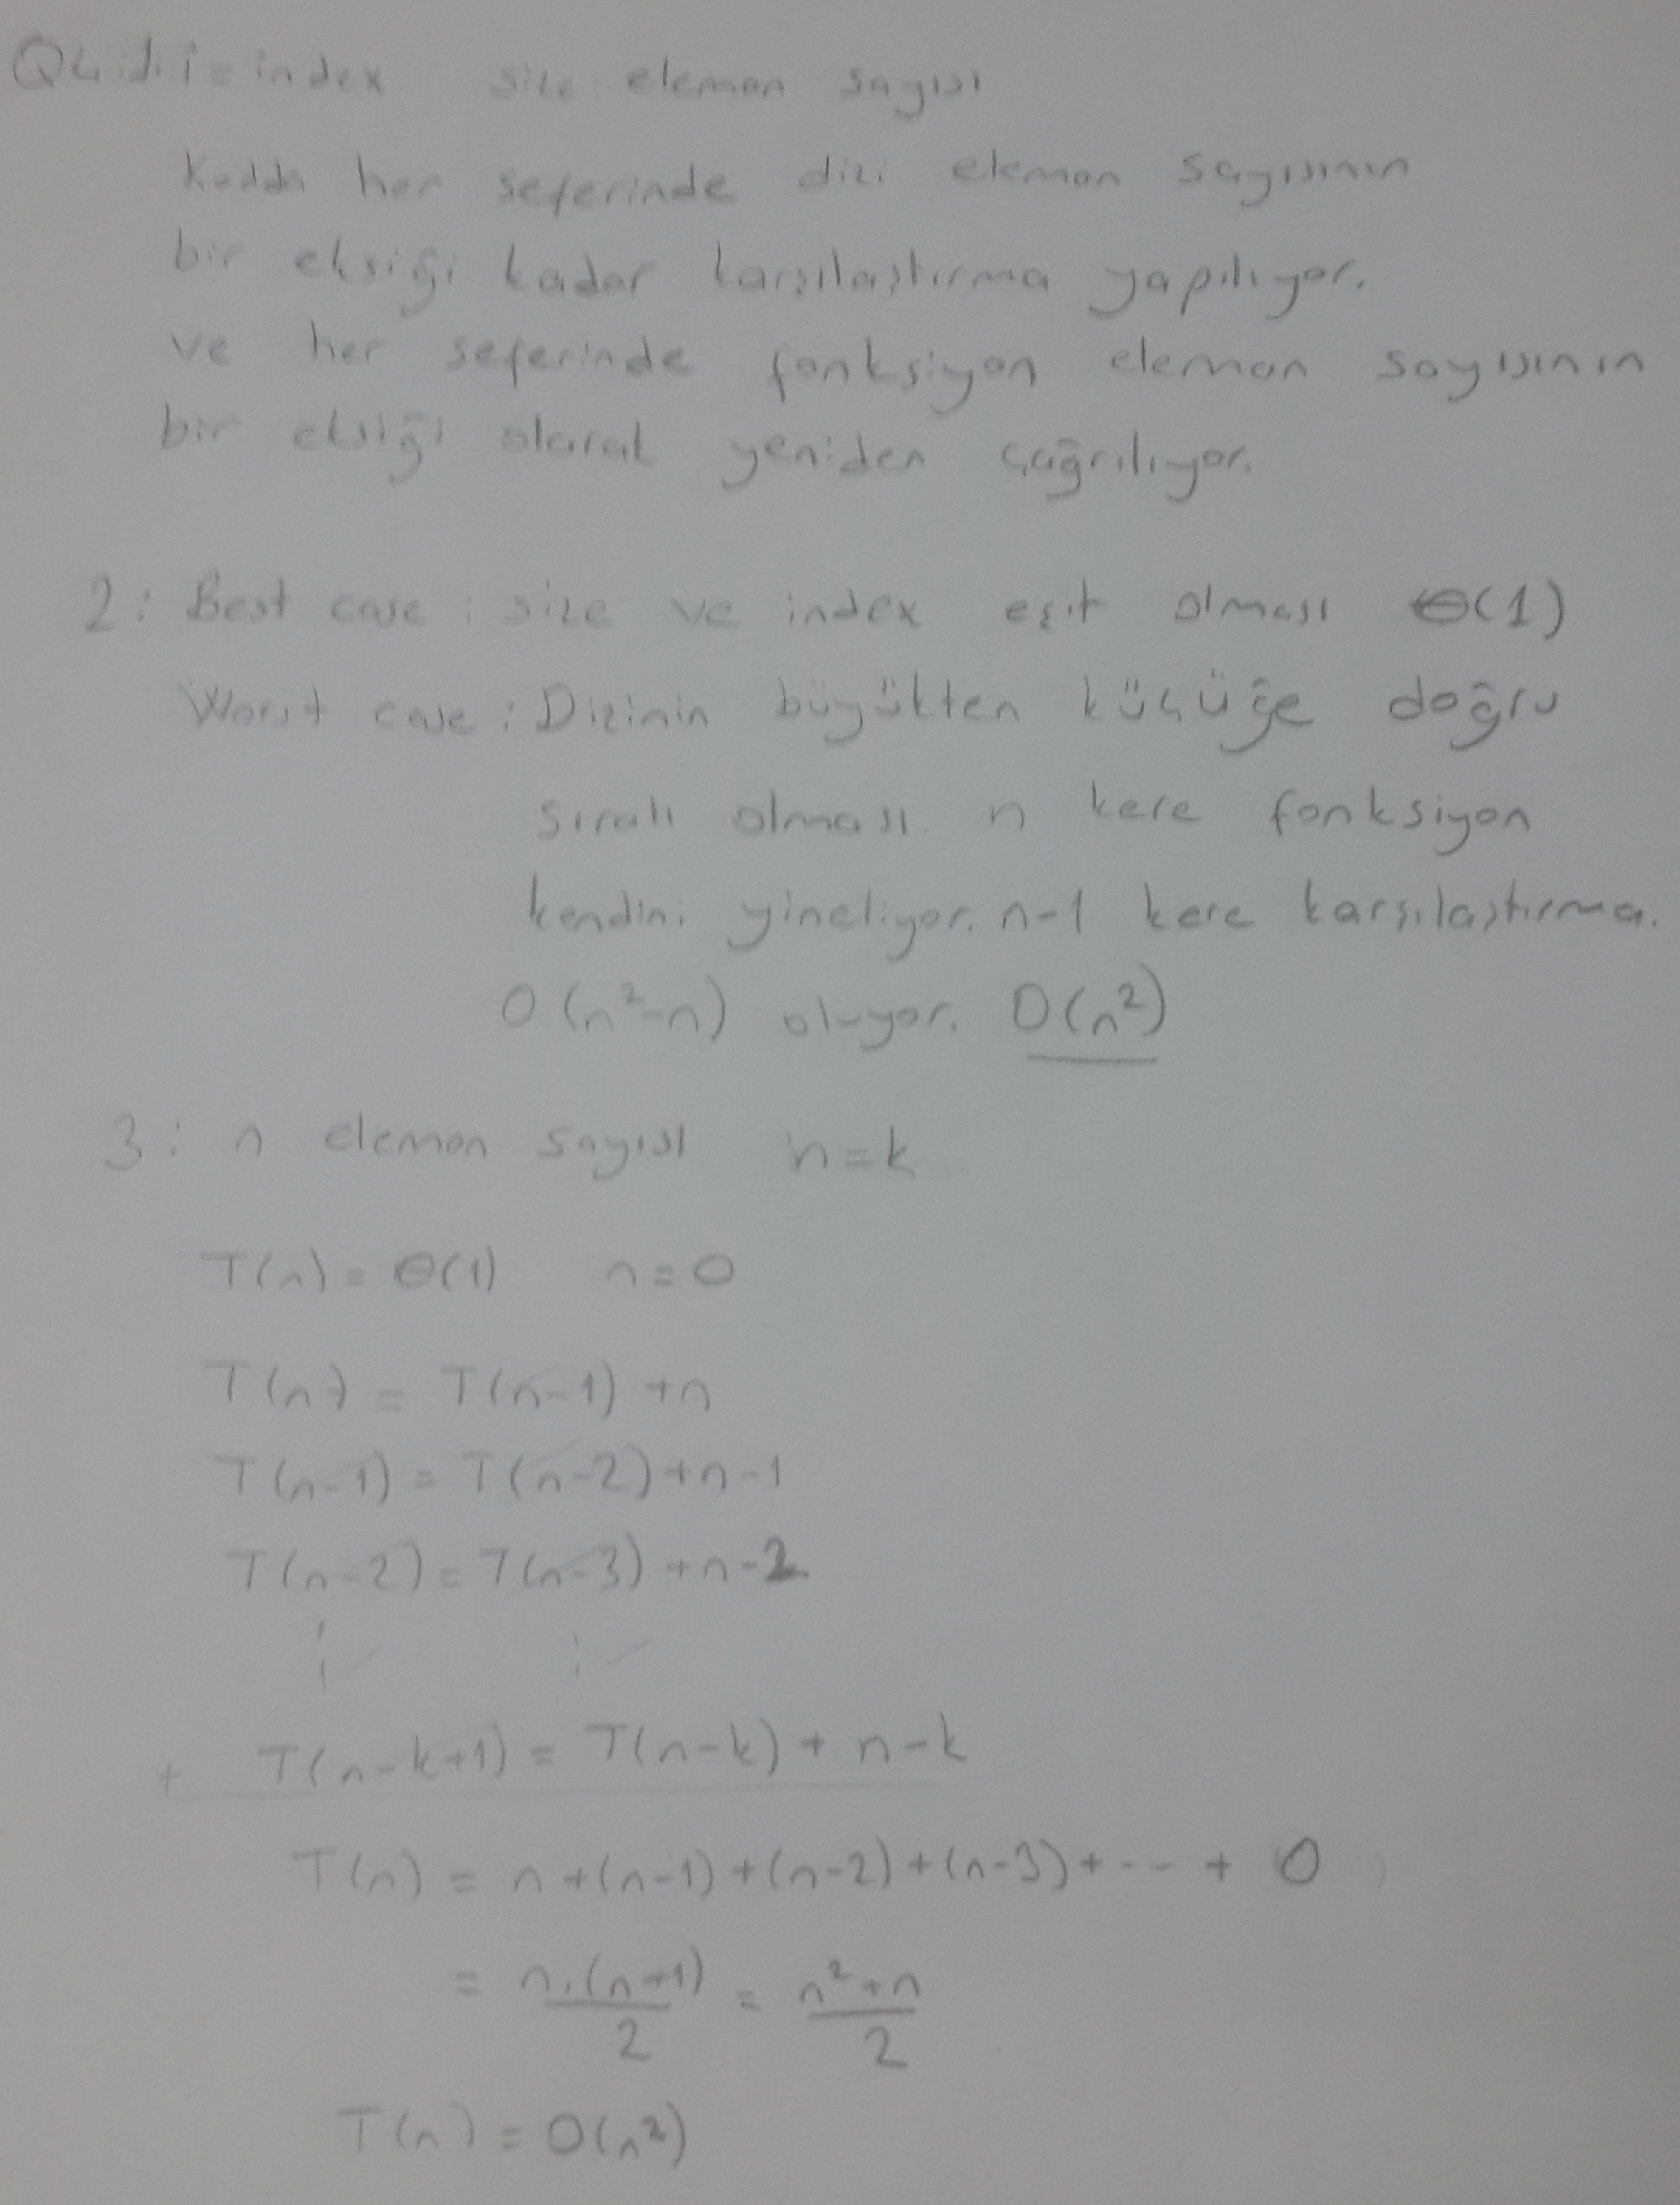 i = index size: eleman sayısı
Kodda her seferinde dizi eleman sayısının
bir eksiği kadar karşılaştırma yapılıyor.
ve her seferinde fonksiyon eleman sayısının
bir eksiği olarak yeniden çağrılıyor.
2: Best case : size ve index eşit olması Θ(1)
Worst case : Dizinin büyükten küçüğe doğru
sıralı olması n kere fonksiyon
kendini yineliyor. n-1 kere karşılaştırma.
O(n²-n) oluyor. O(n²)
3: n eleman sayısı n=k
T(n) = Θ(1) n=0
T(n) = T(n-1) +n
T(n-1) = T(n-2)+n-1
T(n-2) = T(n-3) +n-2
+ T(n-k+1) = T(n-k) + n-k
T(n) = n+(n-1)+(n-2)+(n-3)+--- + 0
= n.(n+1)/2 = n²+n/2
T(n) = O(n²)